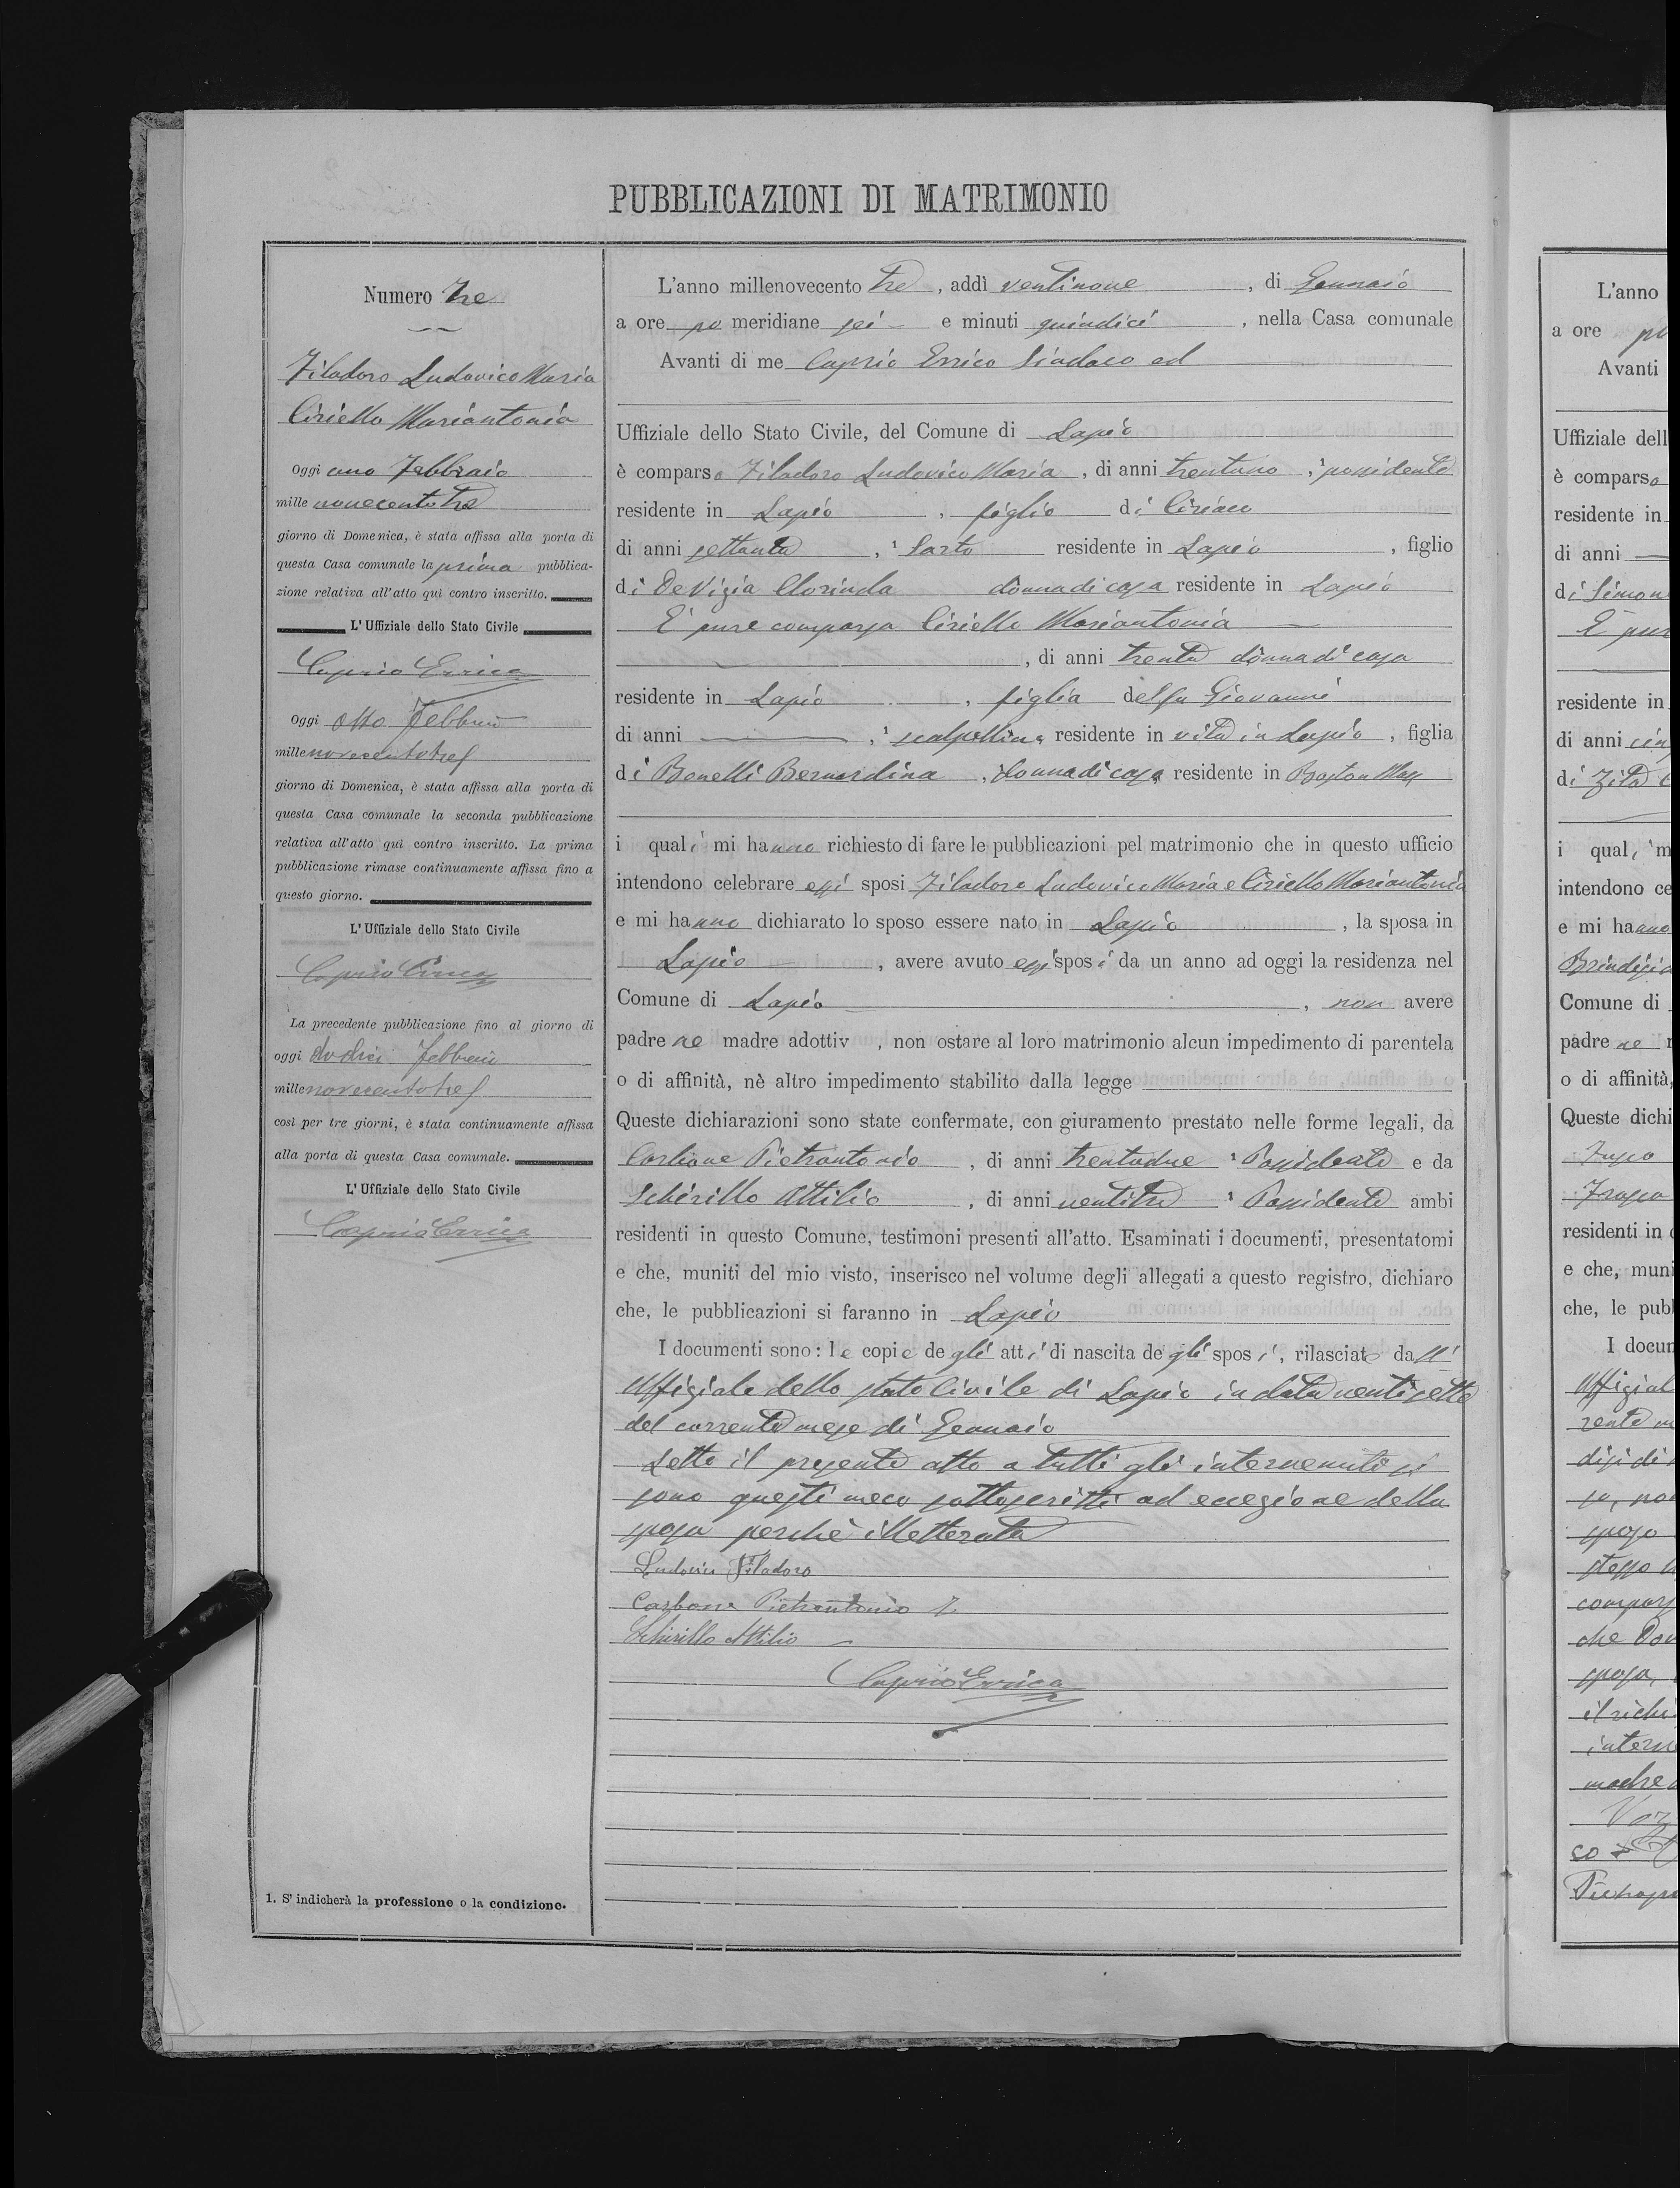 PUBBLICAZIONI DI MATRIMONIO
Numero Tre
Filadoro Ludovico Maria
Ciriello Mariantonia
Oggi uno Febbraio
mille novecentotre
giorno di Domenica, è stata affissa alla porta di
questa Casa comunale la prima pubblica-
zione relativa all'atto quì contro inscritto.
L'Uffiziale dello Stato Civile
Caprio Errico
Oggi otto Febbraio
mille novecentotre
giorno di Domenica, è stata affissa alla porta di
questa Casa comunale la seconda pubblicazione
relativa all'atto quì contro inscritto. La prima
pubblicazione rimase continuamente affissa fino a
questo giorno.
L'Uffiziale dello Stato Civile
Caprio Errico
La precedente pubblicazione fino al giorno di
oggi dodici Febbraio
mille novecentotre
così per tre giorni, è stata continuamente affissa
alla porta di questa Casa comunale.
L'Uffiziale dello Stato Civile
Caprio Errico
1. S'indicherà la professione o la condizione.
L'anno millenovecento tre, addì ventinove, di Gennaio
a ore po meridiane sei e minuti quindici, nella Casa comunale
Avanti di me Caprio Errico Sindaco ed
Uffiziale dello Stato Civile, del Comune di Lapio
è comparso Filadoro Ludovico Maria, di anni trentuno, possidente
residente in Lapio, figlio di Ciriaco
di anni settanta, Sarto residente in Lapio, figlio
di De Vizia Clorinda donna di casa residente in Lapio
È pure comparsa Ciriello Mariantonia
, di anni trenta donna di casa
residente in Lapio, figlia del fu Giovanni
di anni , scalpellino residente in vita in Lapio, figlia
di Benelli Bernardina, donna di casa residente in Boston Mass
i quali mi hanno richiesto di fare le pubblicazioni pel matrimonio che in questo ufficio
intendono celebrare essi sposi Filadoro Ludovico Maria e Ciriello Mariantonia
e mi hanno dichiarato lo sposo essere nato in Lapio, la sposa in
Lapio, avere avuto essi sposi da un anno ad oggi la residenza nel
Comune di Lapio, non avere
padre ne madre adottiv , non ostare al loro matrimonio alcun impedimento di parentela
o di affinità, nè altro impedimento stabilito dalla legge
Queste dichiarazioni sono state confermate, con giuramento prestato nelle forme legali, da
Carbone Pietrantonio, di anni trentadue 1 Possidente e da
Schirillo Attilio, di anni ventitre 1 Possidente ambi
residenti in questo Comune, testimoni presenti all'atto. Esaminati i documenti, presentatomi
e che, muniti del mio visto, inserisco nel volume degli allegati a questo registro, dichiaro
che, le pubblicazioni si faranno in Lapio
I documenti sono: le copie degli atti di nascita degli sposi, rilasciate dall'
Uffiziale dello stato Civile di Lapio in data ventisette
del corrente mese di Gennaio
Letto il presente atto a tutti gli intervenuti si
sono questi meco sottoscritti ad eccezione della
sposa perchè illetterata
Ludovico Filadoro
Carbone Pietrantonio
Schirillo Attilio
Caprio Errico
L'anno
a ore po
Avanti
Uffiziale dell
è comparso
residente in
di anni
di Simon
È pur
residente in
di anni cin
di Zita
i quali m
intendono ce
e mi hanno
Brindisi
Comune di
padre ne
o di affinità,
Queste dichi
residenti in
e che, muni
che, le pubb
I docum
Uffizial
rente m
sposo
stesso
compars
che
sposa,
madre